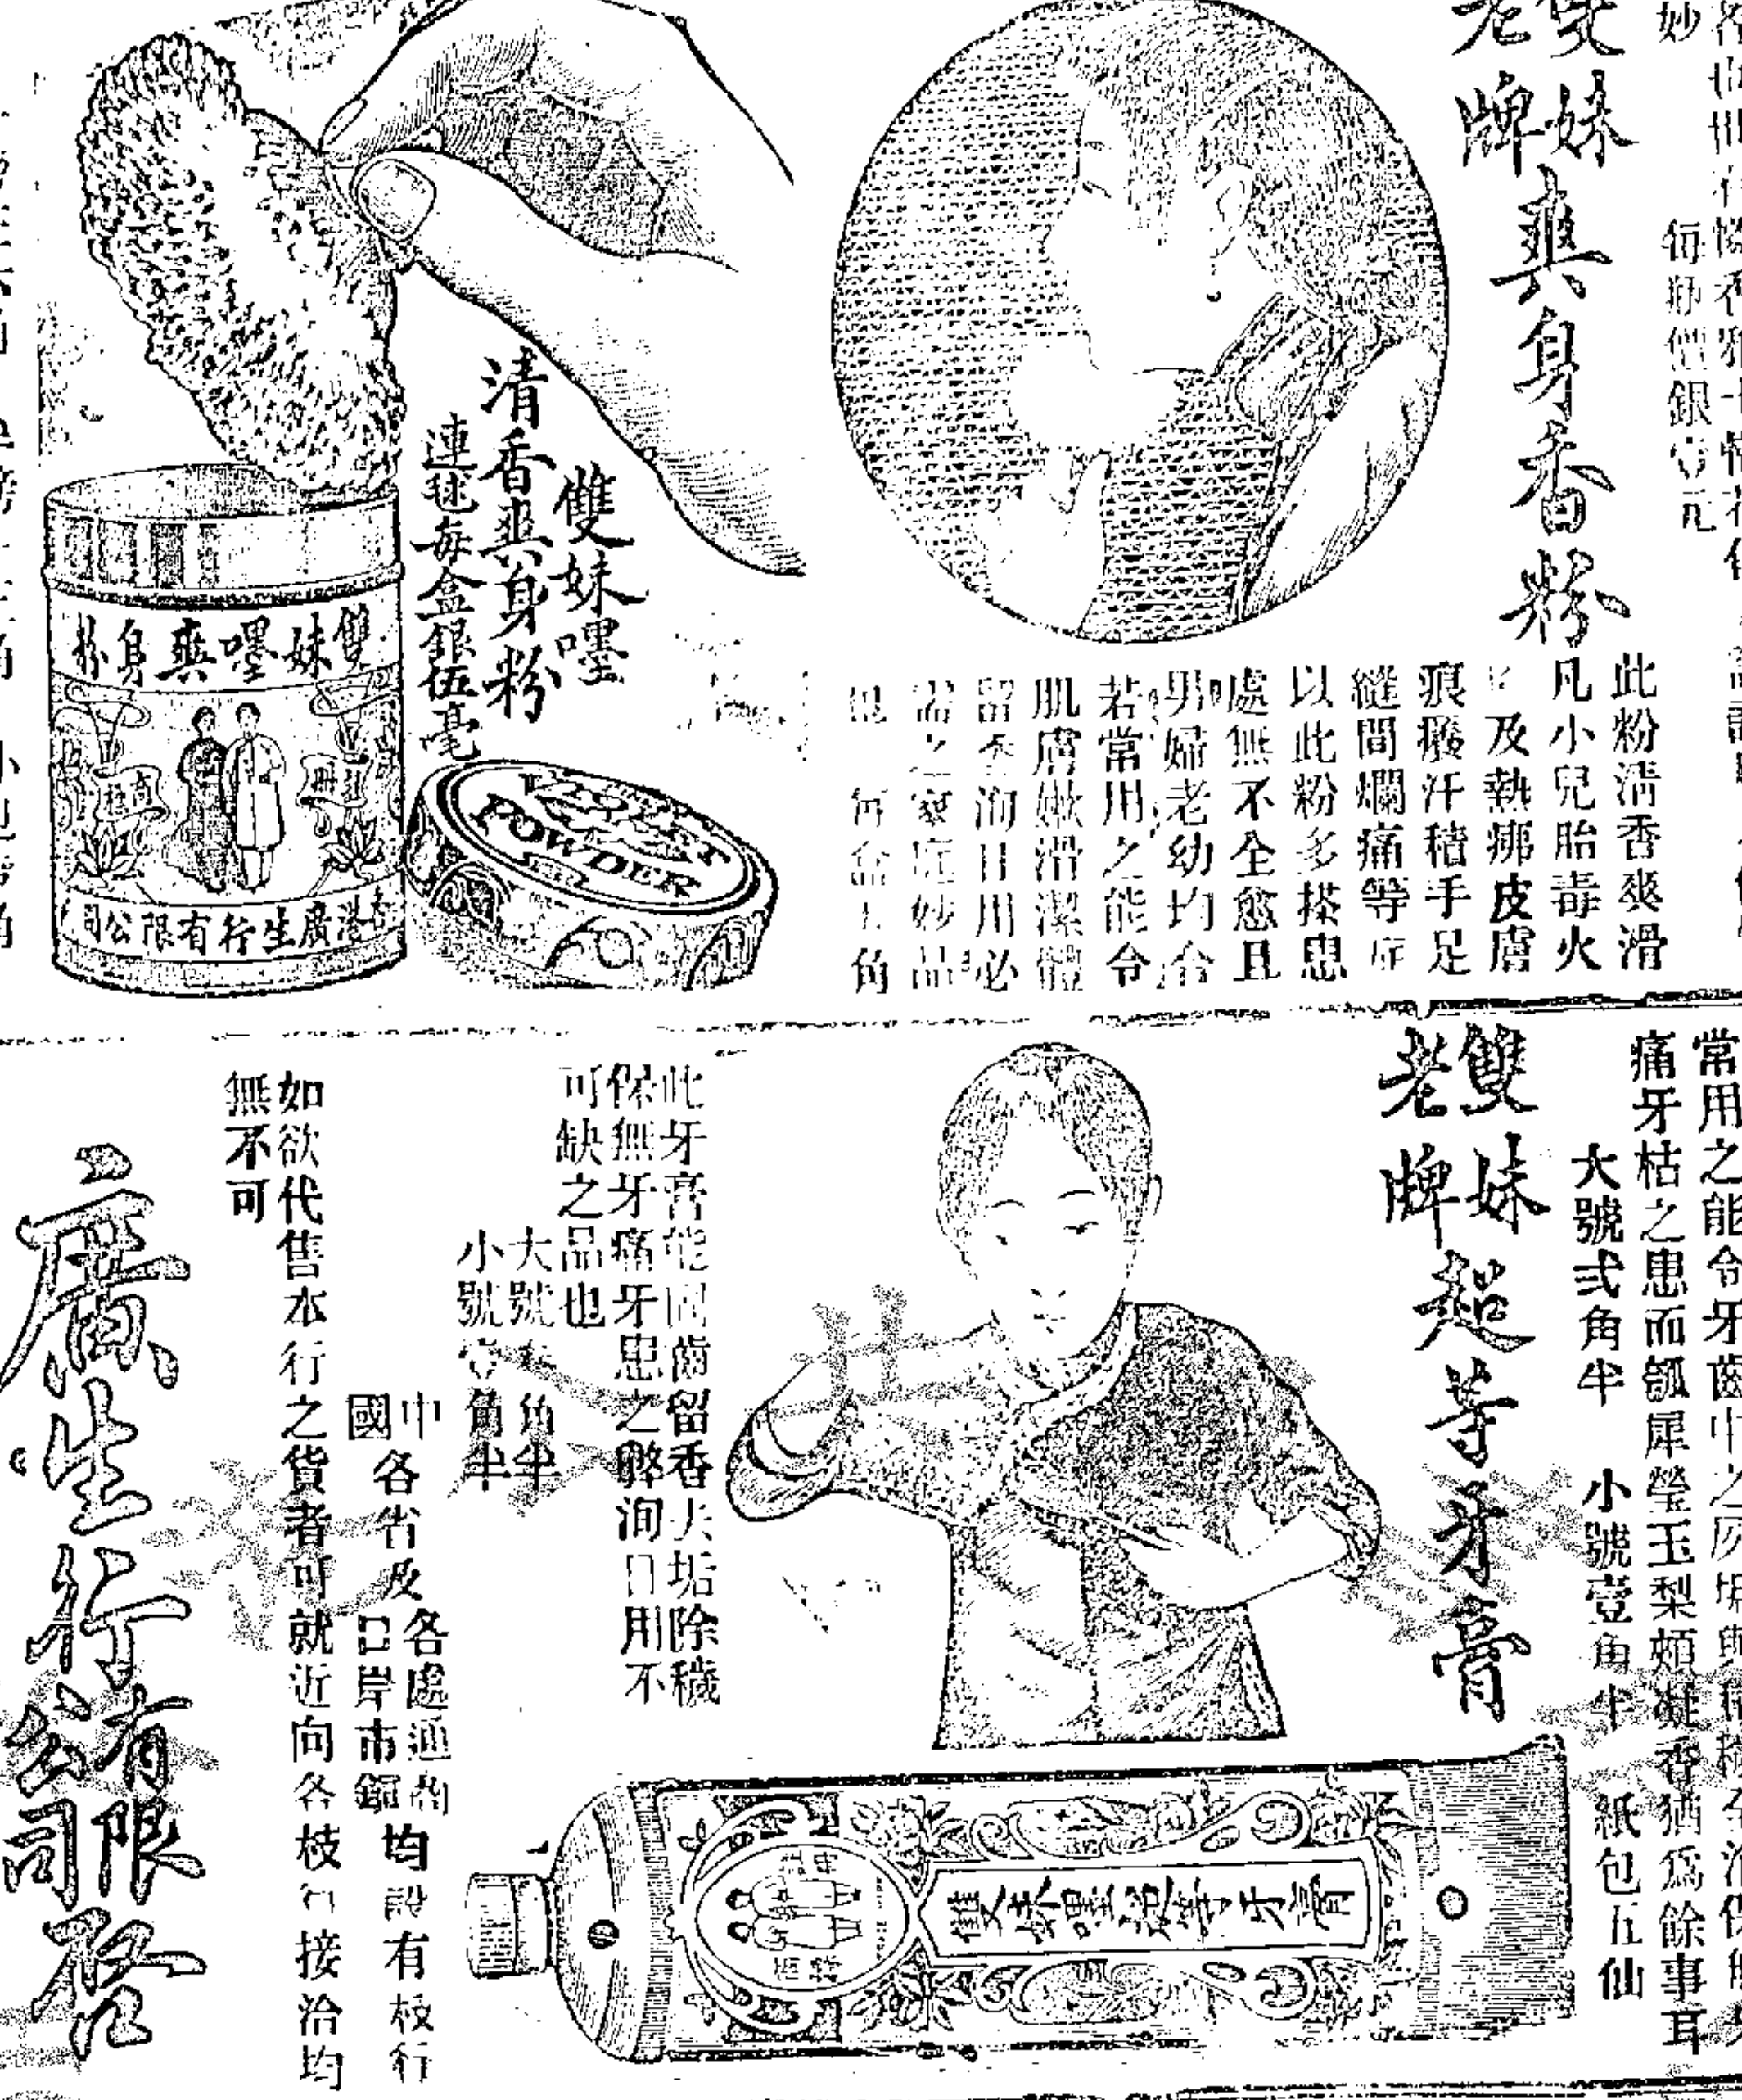 妙
每瓶價銀壹元
雙妹
老牌
爽身香粉
此粉清香爽滑
凡小兒胎毒火
及熱痱皮膚
痕癢汗積手足
縫間爛痛等症
以此粉多搽患
處無不全愈且
男婦老幼均合
若常用之能令
肌膚嫩滑潔體
留香洵日用必
需之家庭妙品
也 每盒五角
雙妹嚜
清香爽身粉
連毬每盒銀伍毫
雙妹嚜爽身粉
香港廣生行有限公司
VIOLET
POWDER
常用之能令牙齒中之
痛牙枯之患而瓠犀瑩玉梨頰凝香猶為餘事耳
大號弍角半 小號壹角半 紙包五仙
雙妹
老牌
超等牙膏
此牙膏能固齒留香去垢除穢
保無牙痛牙患之弊洵日用不
可缺之品也
大號 角半
小號壹角半
雙妹嚜超等牙膏
中國各省及各處通商口岸市鎮均設有枝行
如欲代售本行之貨者可就近向各枝行接洽均
無不可
廣生行有限公司啓